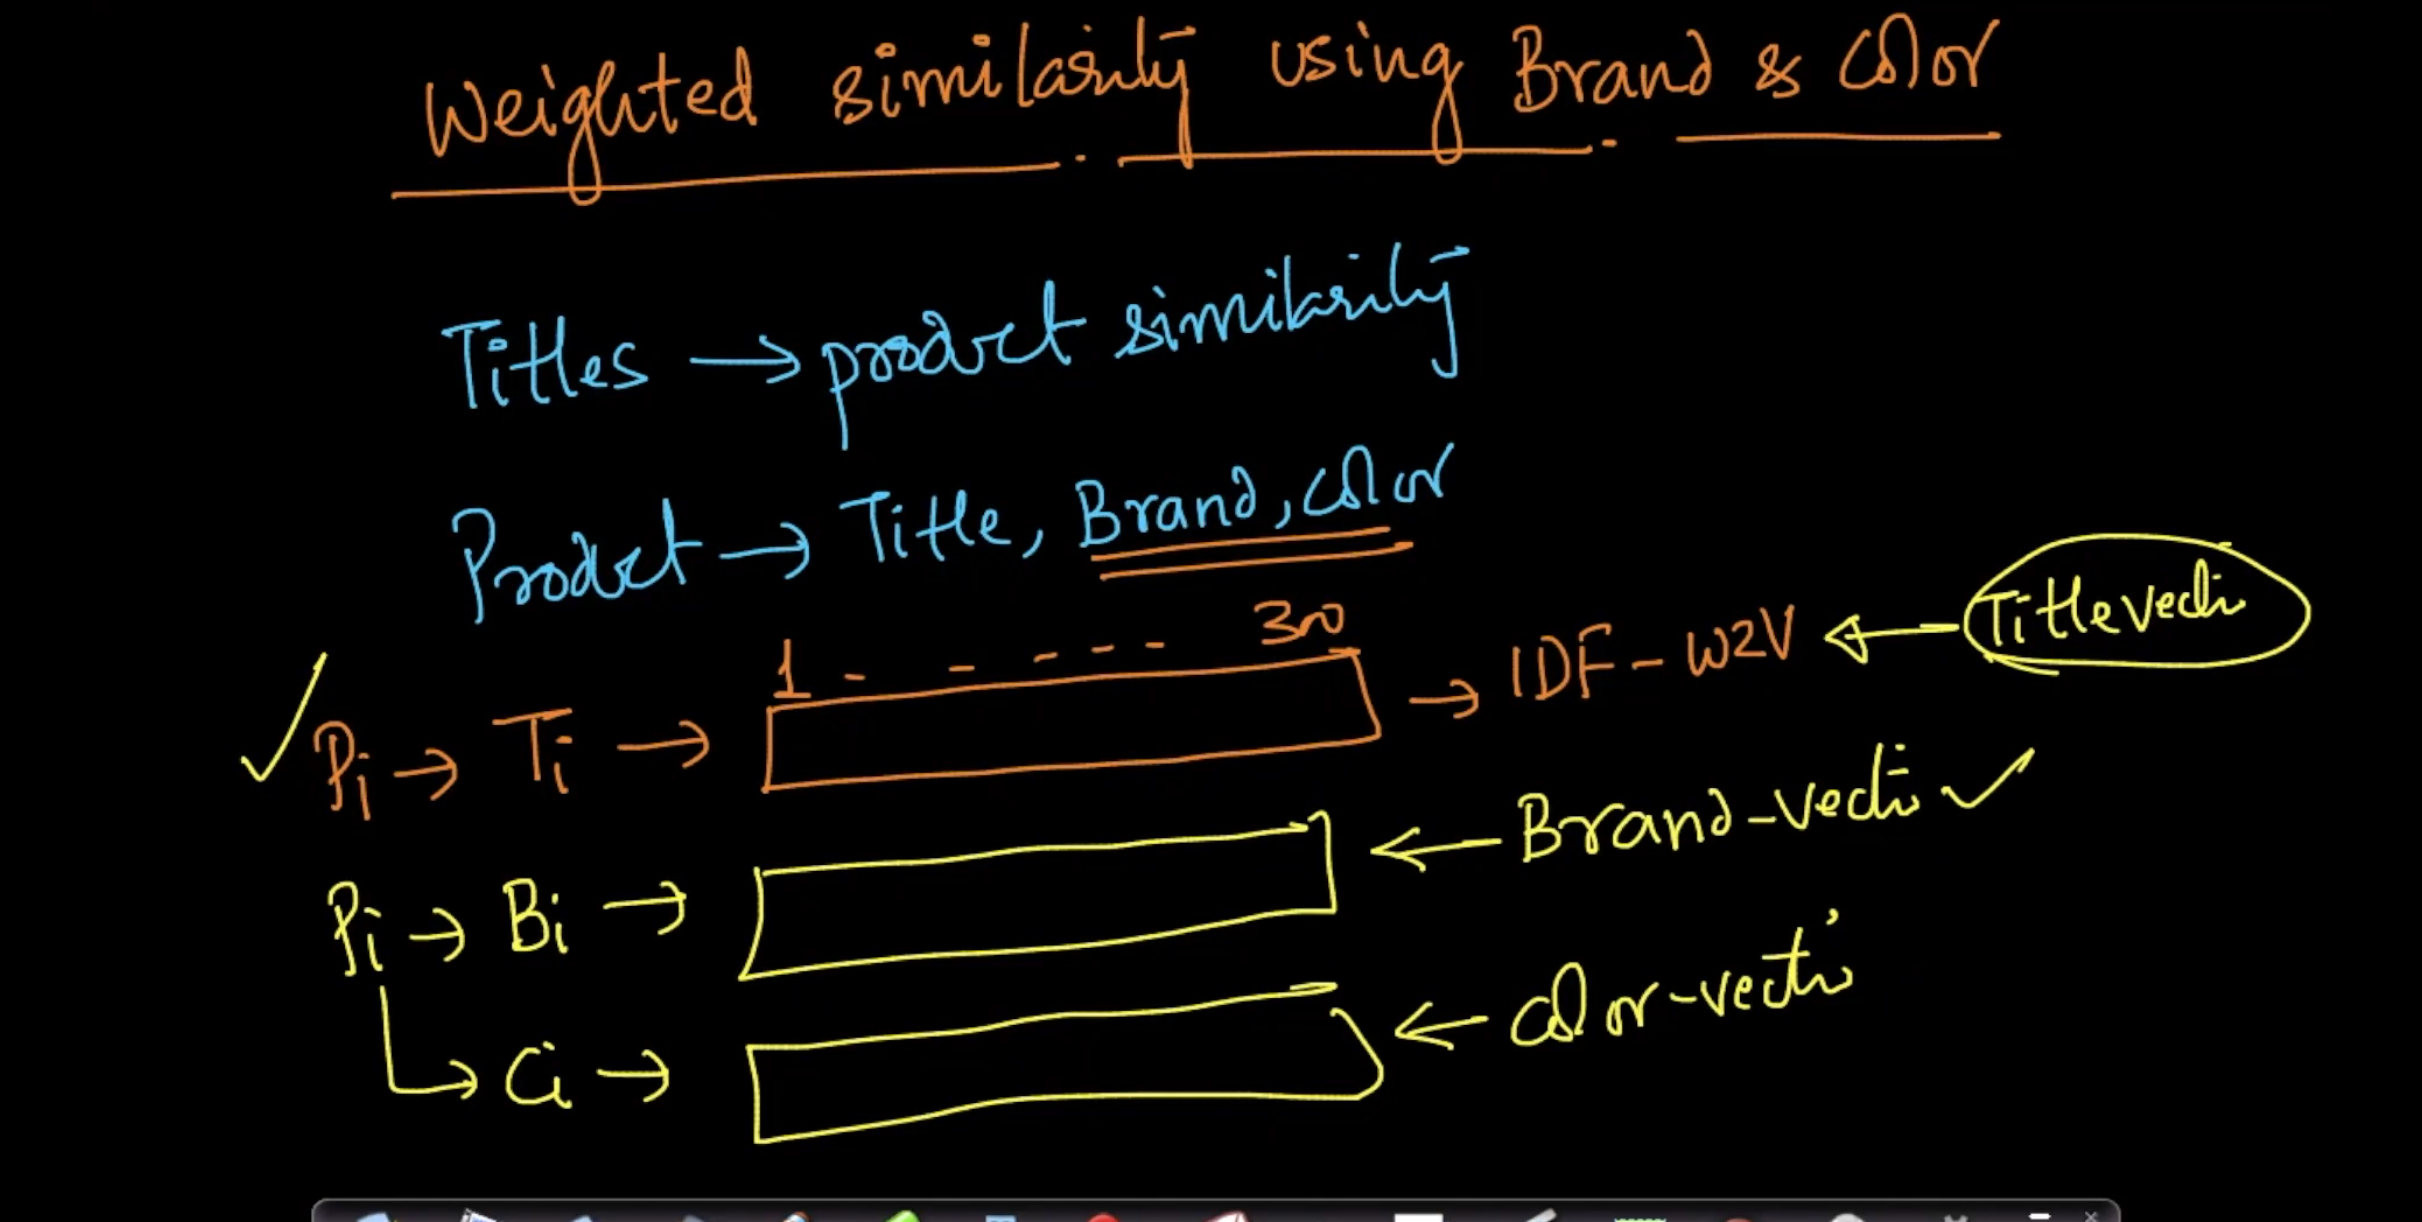 Weighted similarity using Brand & Color
Titles → product similarity
Product → Title, Brand, color
1 - - - - - 300
Pi → Ti → → IDF - W2V ← Title vector
Pi → Bi → ← Brand-vector ✓
Ci → ← color-vector